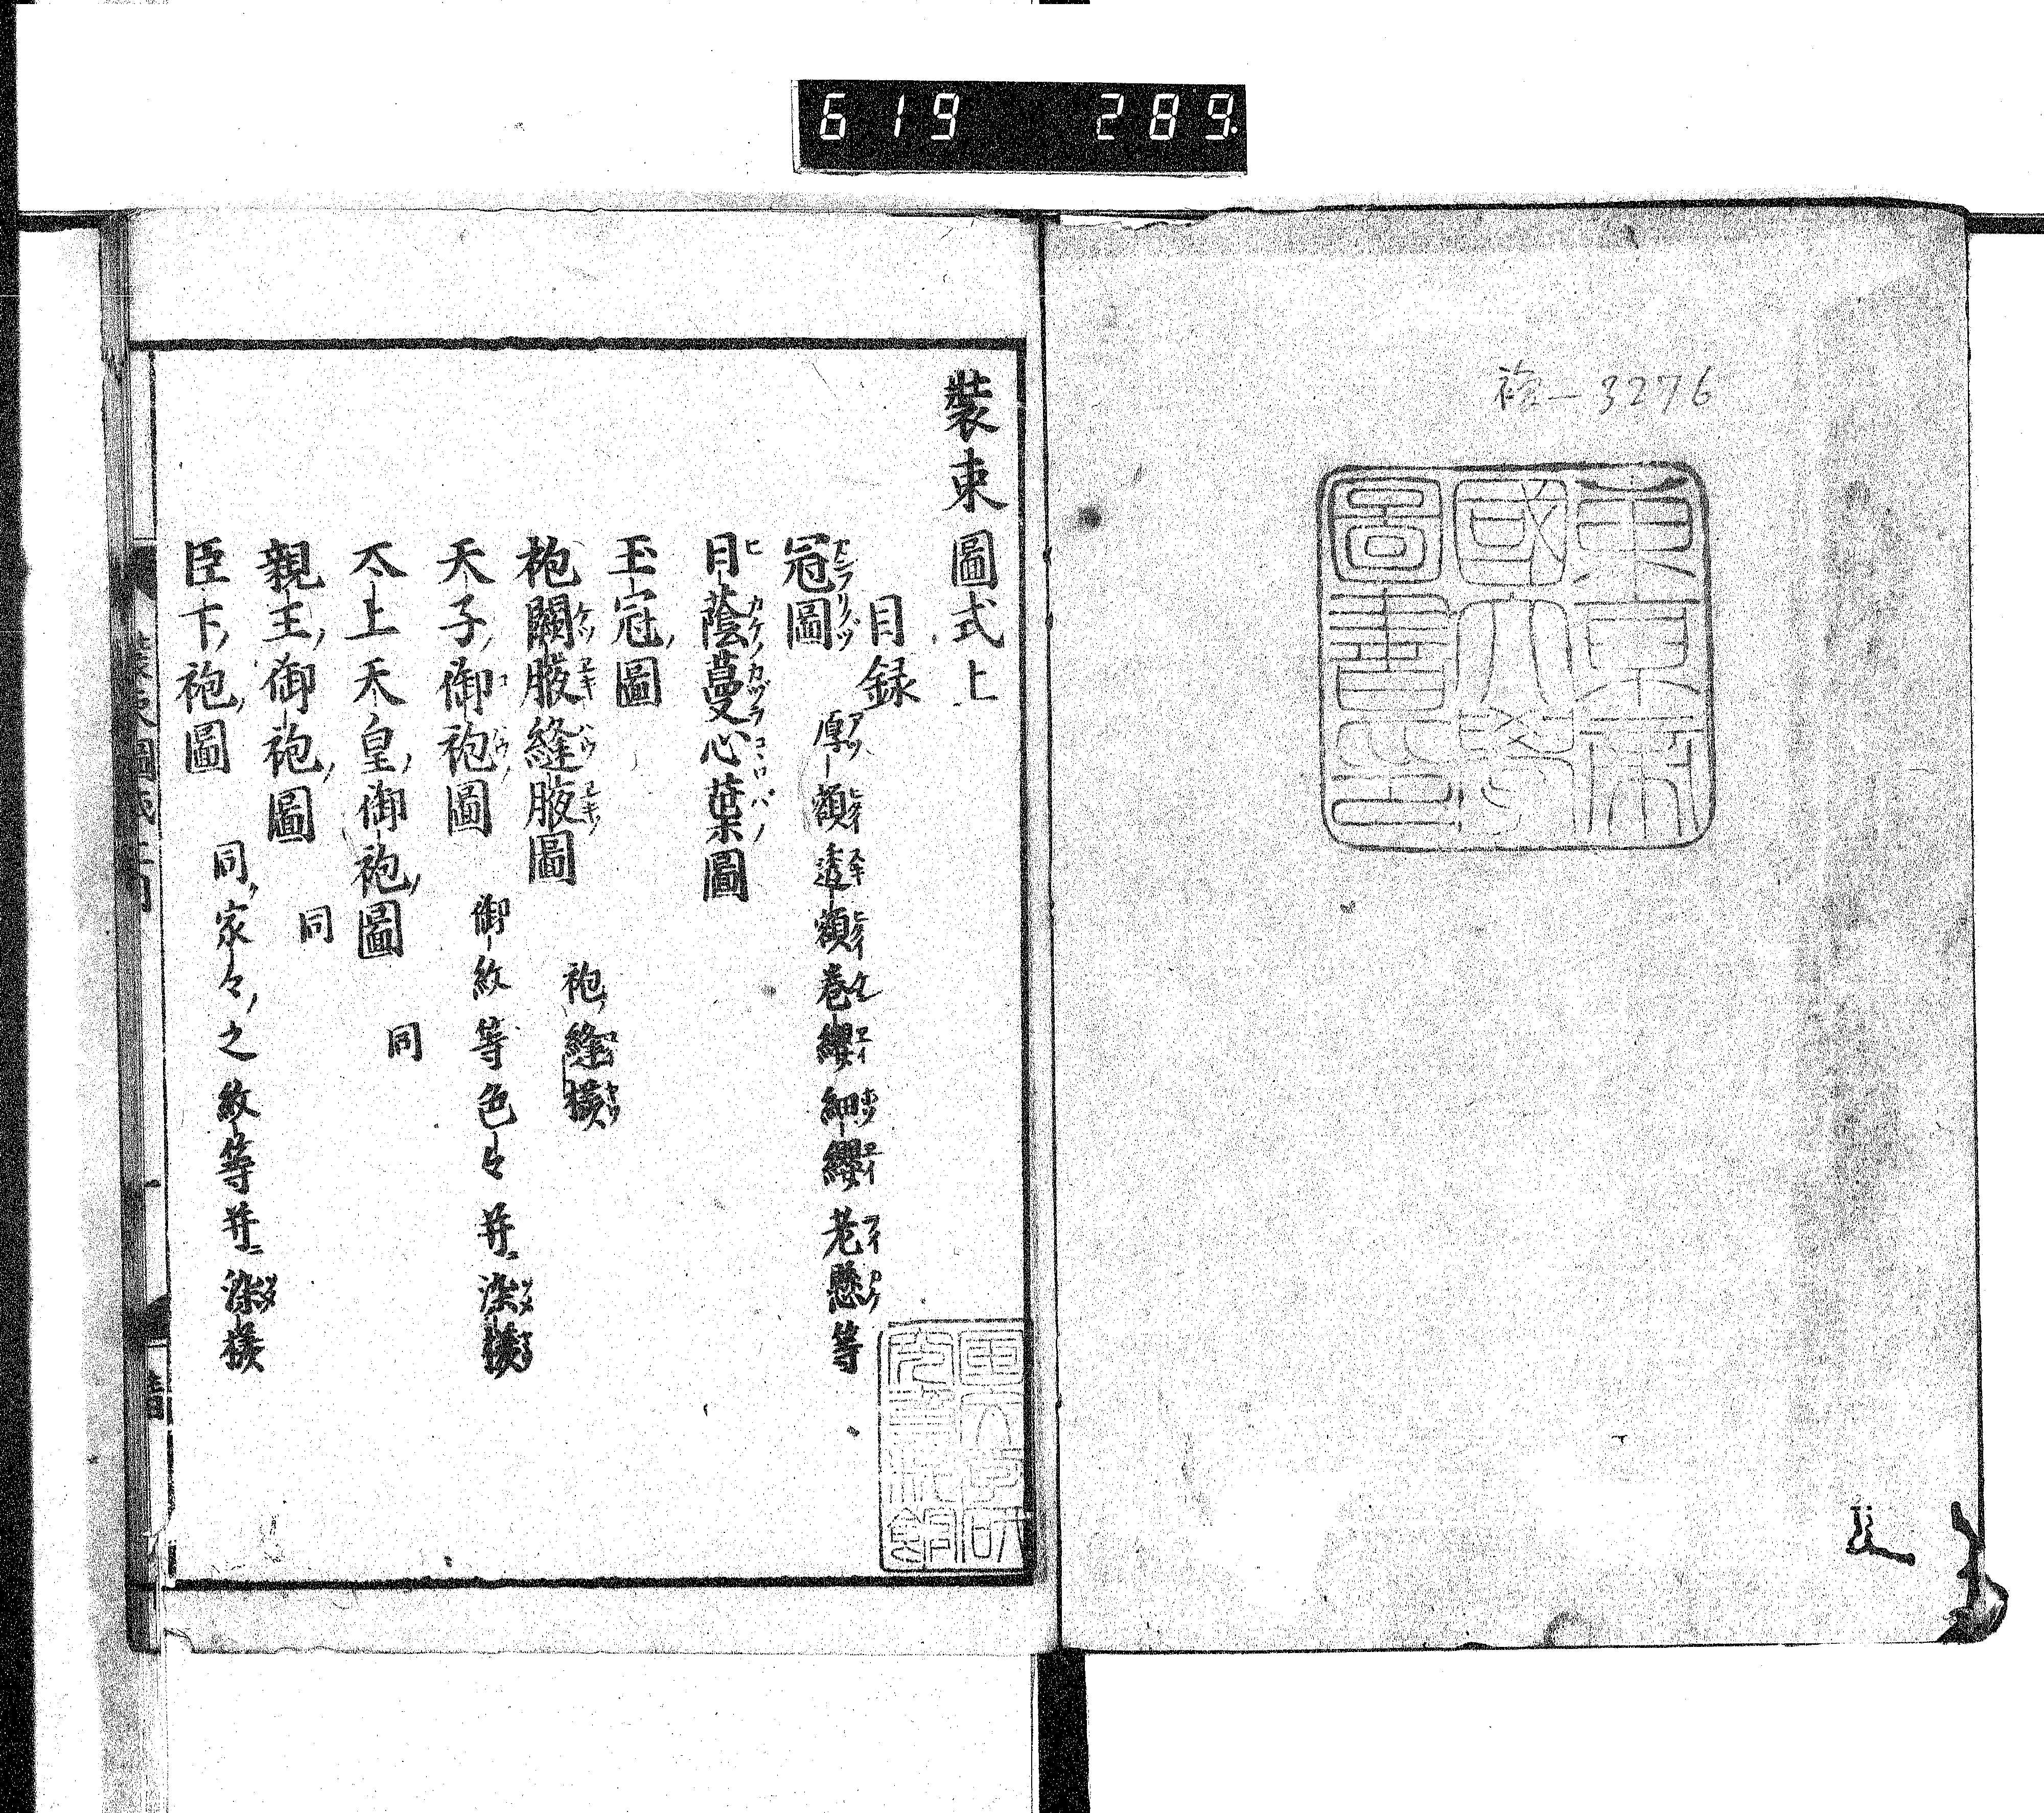 619 289.
3276
東京帝
國大學
圖書印
裝束圖式上
目録
冠圖 厚額透額巻纓細纓老懸等
日蔭蔓心葉圖
玉冠圖
袍闕腋縫腋圖 袍縫様
天子御袍圖 御紋等色々并染様
太上天皇御袍圖 同
親王御袍圖 同
臣下袍圖 同家々之紋等并染様